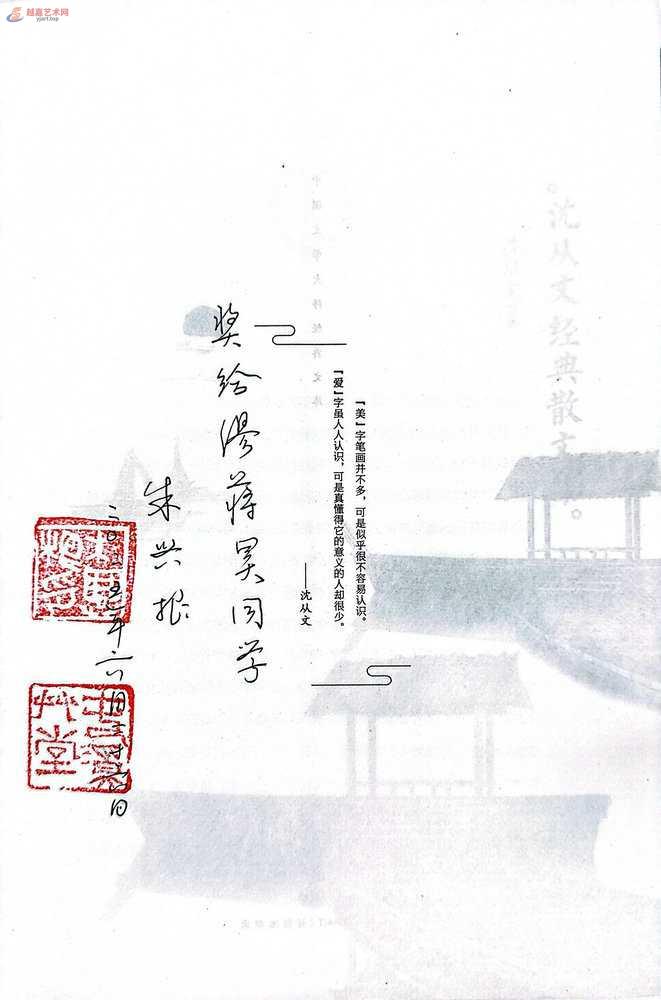 越嘉艺术网
yjart.top
沈从文经典散文
「美」字笔画并不多，可是似乎很不容易认识。
「爱」字虽人人认识，可是真懂得它的意义的人却很少。
——沈从文
奖给湯蒋昊同学
朱兴根
二〇二五年六月二十六日
草堂